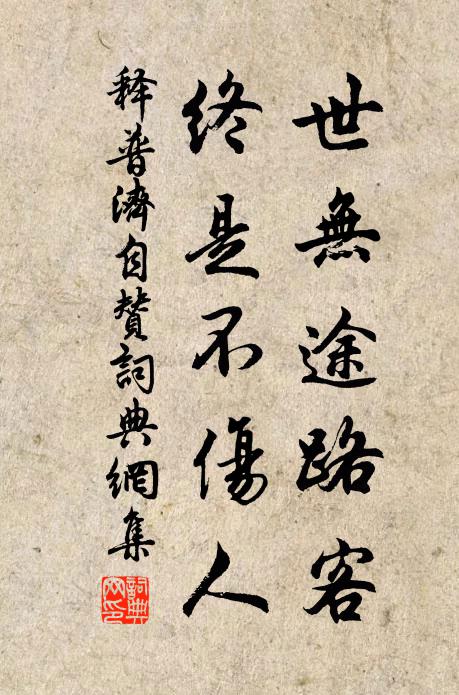 世無途路客
終是不傷人
释普濟自贊詞典網集
詞典